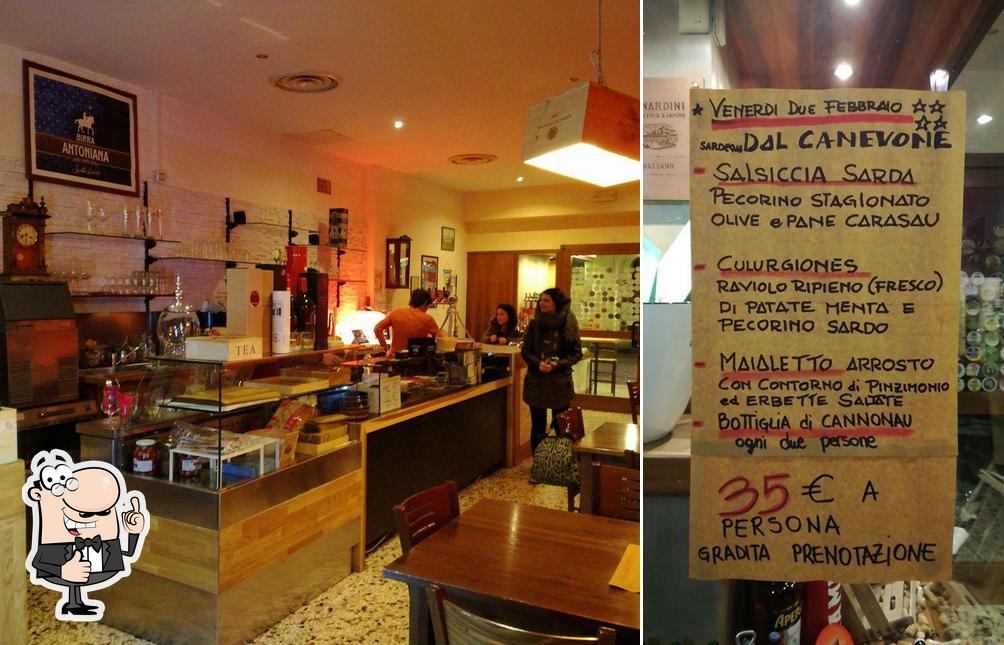 BIRRA
ANTONIANA
TEA
NARDINI
BASSANO
VENERDI DUE FEBBRAIO
DAL CANEVONE
SALSICCIA SARDA
PECORINO STAGIONATO
OLIVE e PANE CARASAU
CULURGIONES
RAVIOLO RIPIENO (FRESCO)
DI PATATE MENTA E
PECORINO SARDO
MAIALETTO ARROSTO
CON CONTORNO di PINZIMONIO
ed ERBETTE SALTATE
BOTTIGLIA di CANNONAU
ogni due persone
35 € A
PERSONA
GRADITA PRENOTAZIONE